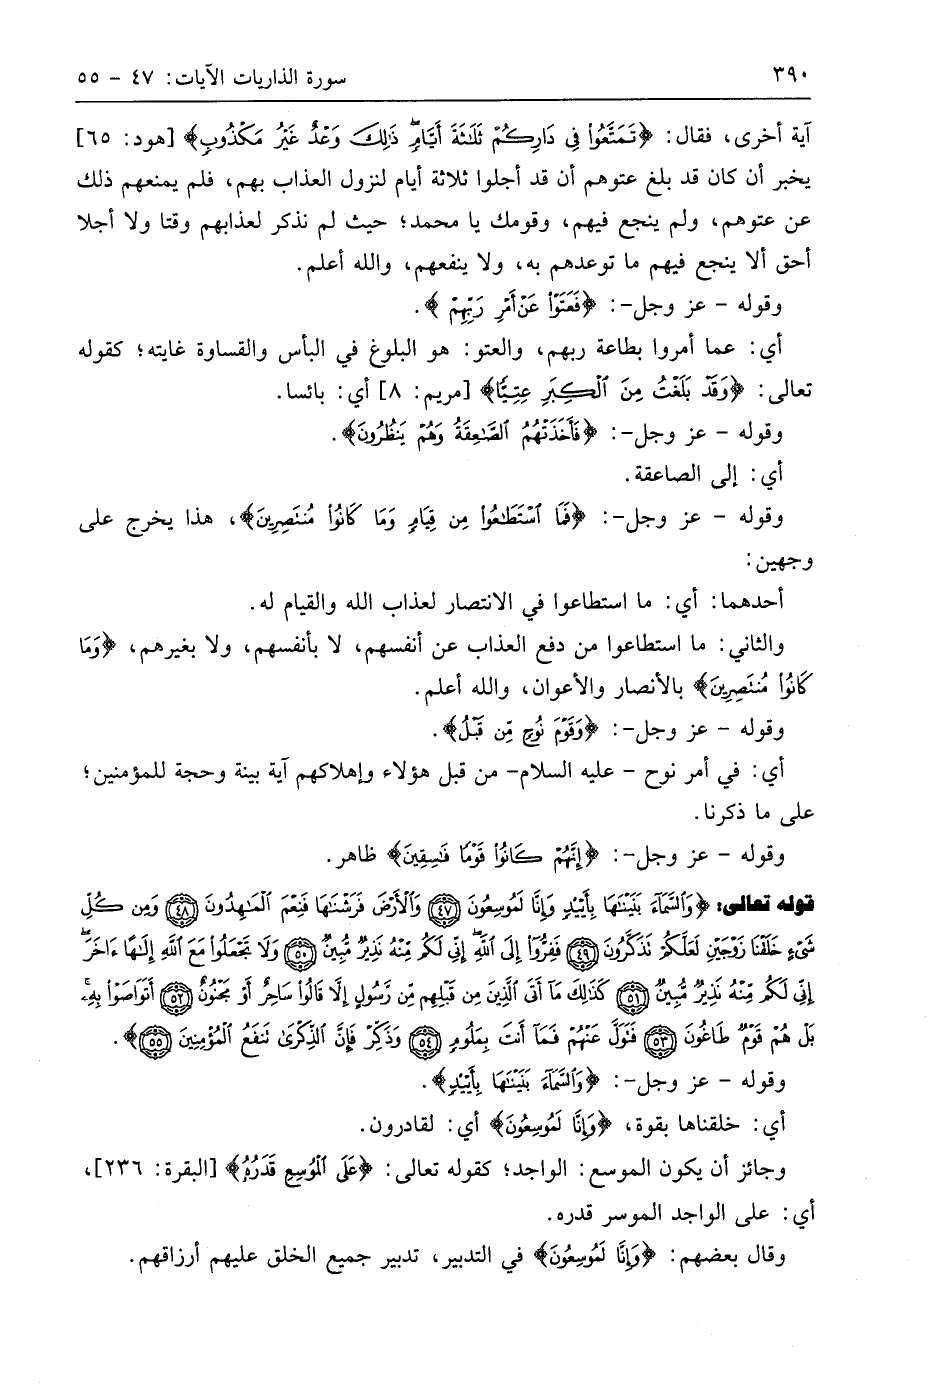 ٣٩٠ سورة الذاريات الآيات: ٤٧ - ٥٥
آية أخرى، فقال: ﴿تَمَتَّعُوا۟ فِى دَارِكُمْ ثَلَـٰثَةَ أَيَّامٍۖ ذَٰلِكَ وَعْدٌ غَيْرُ مَكْذُوبٍ﴾ [هود: ٦٥]
يخبر أن كان قد بلغ عتوهم أن قد أجلوا ثلاثة أيام لنزول العذاب بهم، فلم يمنعهم ذلك
عن عتوهم، ولم ينجع فيهم، وقومك يا محمد؛ حيث لم نذكر لعذابهم وقتا ولا أجلا
أحق ألا ينجع فيهم ما توعدهم به، ولا ينفعهم، والله أعلم.
وقوله - عز وجل-: ﴿فَعَتَوْا۟ عَنْ أَمْرِ رَبِّهِمْ﴾.
أي: عما أمروا بطاعة ربهم، والعتو: هو البلوغ في البأس والقساوة غايته؛ كقوله
تعالى: ﴿وَقَدْ بَلَغْتُ مِنَ ٱلْكِبَرِ عِتِيًّا﴾ [مريم: ٨] أي: بائسا.
وقوله - عز وجل-: ﴿فَأَخَذَتْهُمُ ٱلصَّـٰعِقَةُ وَهُمْ يَنظُرُونَ﴾.
أي: إلى الصاعقة.
وقوله - عز وجل-: ﴿فَمَا ٱسْتَطَـٰعُوا۟ مِن قِيَامٍ وَمَا كَانُوا۟ مُنتَصِرِينَ﴾، هذا يخرج على
وجهين:
أحدهما: أي: ما استطاعوا في الانتصار لعذاب الله والقيام له.
والثاني: ما استطاعوا من دفع العذاب عن أنفسهم، لا بأنفسهم، ولا بغيرهم، ﴿وَمَا
كَانُوا۟ مُنتَصِرِينَ﴾ بالأنصار والأعوان، والله أعلم.
وقوله - عز وجل-: ﴿وَقَوْمَ نُوحٍ مِّن قَبْلُ﴾.
أي: في أمر نوح - عليه السلام- من قبل هؤلاء وإهلاكهم آية بينة وحجة للمؤمنين؛
على ما ذكرنا.
وقوله - عز وجل-: ﴿إِنَّهُمْ كَانُوا۟ قَوْمًا فَـٰسِقِينَ﴾ ظاهر.
قوله تعالى: ﴿وَٱلسَّمَآءَ بَنَيْنَـٰهَا بِأَيْيْدٍ وَإِنَّا لَمُوسِعُونَ ٤٧ وَٱلْأَرْضَ فَرَشْنَـٰهَا فَنِعْمَ ٱلْمَـٰهِدُونَ ٤٨ وَمِن كُلِّ
شَىْءٍ خَلَقْنَا زَوْجَيْنِ لَعَلَّكُمْ تَذَكَّرُونَ ٤٩ فَفِرُّوٓا۟ إِلَى ٱللَّهِۖ إِنِّى لَكُم مِّنْهُ نَذِيرٌ مُّبِينٌ ٥٠ وَلَا تَجْعَلُوا۟ مَعَ ٱللَّهِ إِلَـٰهًا ءَاخَرَۖ
إِنِّى لَكُم مِّنْهُ نَذِيرٌ مُّبِينٌ ٥١ كَذَٰلِكَ مَآ أَتَى ٱلَّذِينَ مِن قَبْلِهِم مِّن رَّسُولٍ إِلَّا قَالُوا۟ سَاحِرٌ أَوْ مَجْنُونٌ ٥٢ أَتَوَاصَوْا۟ بِهِۦۚ
بَلْ هُمْ قَوْمٌ طَاغُونَ ٥٣ فَتَوَلَّ عَنْهُمْ فَمَآ أَنتَ بِمَلُومٍ ٥٤ وَذَكِّرْ فَإِنَّ ٱلذِّكْرَىٰ تَنفَعُ ٱلْمُؤْمِنِينَ ٥٥﴾.
وقوله - عز وجل-: ﴿وَٱلسَّمَآءَ بَنَيْنَـٰهَا بِأَيْيْدٍ﴾.
أي: خلقناها بقوة، ﴿وَإِنَّا لَمُوسِعُونَ﴾ أي: لقادرون.
وجائز أن يكون الموسع: الواجد؛ كقوله تعالى: ﴿عَلَى ٱلْمُوسِعِ قَدَرُهُۥ﴾ [البقرة: ٢٣٦]،
أي: على الواجد الموسر قدره.
وقال بعضهم: ﴿وَإِنَّا لَمُوسِعُونَ﴾ في التدبير، تدبير جميع الخلق عليهم أرزاقهم.